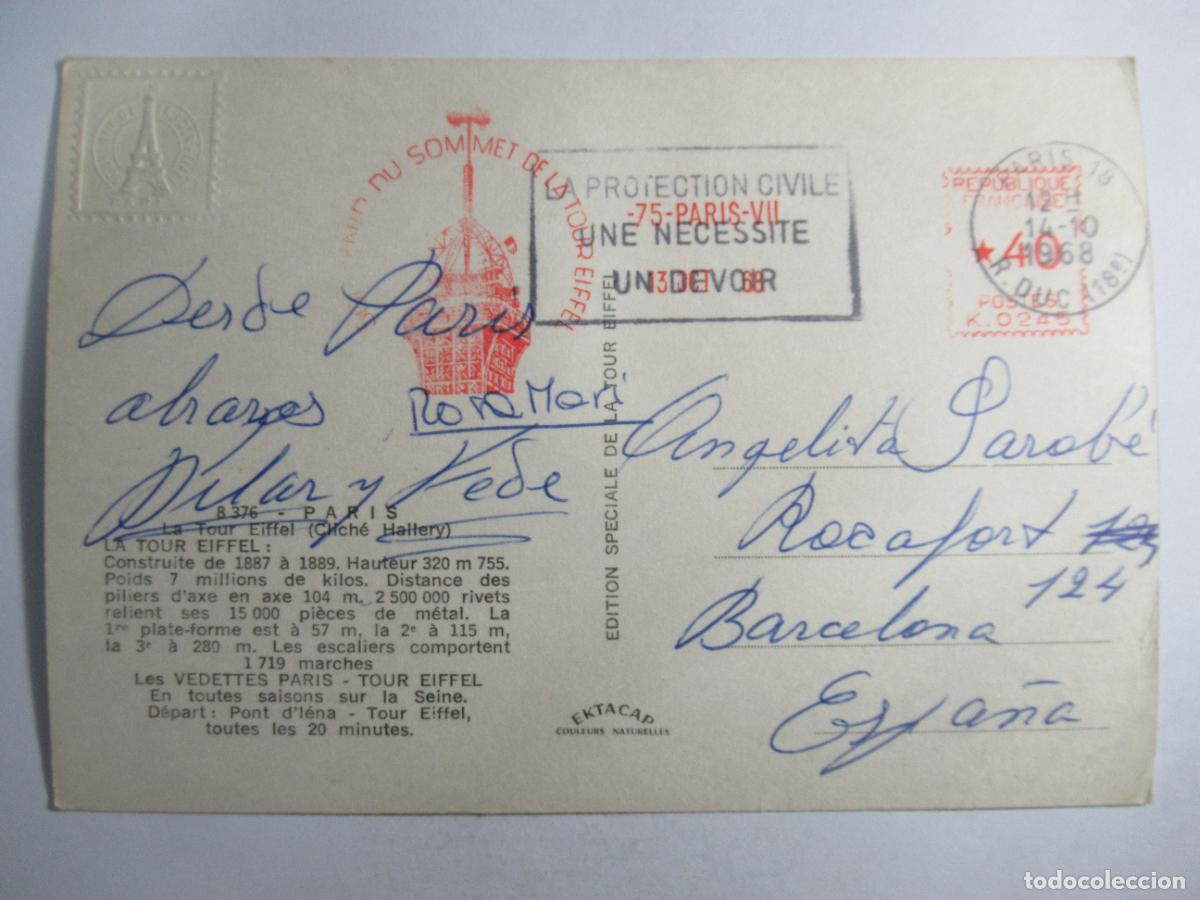 DU SOMMET DE LA TOUR EIFFEL
LA PROTECTION CIVILE
UNE NECESSITE
UN DEVOIR
-75-PARIS-VII
13 OCT 68
PARIS 18
12H
14-10
1968
R. DUC (18e)
REPUBLIQUE
FRANCAISE
★40
POSTES
K.0245
Desde Paris
abrazos Rosa Mari
Pilar y Fede
8.376 - PARIS
La Tour Eiffel (Cliché Hallery)
LA TOUR EIFFEL :
Construite de 1887 à 1889. Hauteur 320 m 755.
Poids 7 millions de kilos. Distance des
piliers d'axe en axe 104 m. 2 500 000 rivets
relient ses 15 000 pièces de métal. La
1re plate-forme est à 57 m, la 2e à 115 m,
la 3e à 280 m. Les escaliers comportent
1 719 marches
Les VEDETTES PARIS - TOUR EIFFEL
En toutes saisons sur la Seine.
Départ : Pont d'Iéna - Tour Eiffel,
toutes les 20 minutes.
EDITION SPECIALE DE LA TOUR EIFFEL
EKTACAP
COULEURS NATURELLES
Angelita Sarobé
Rocafort
124
Barcelona
España
todocoleccion